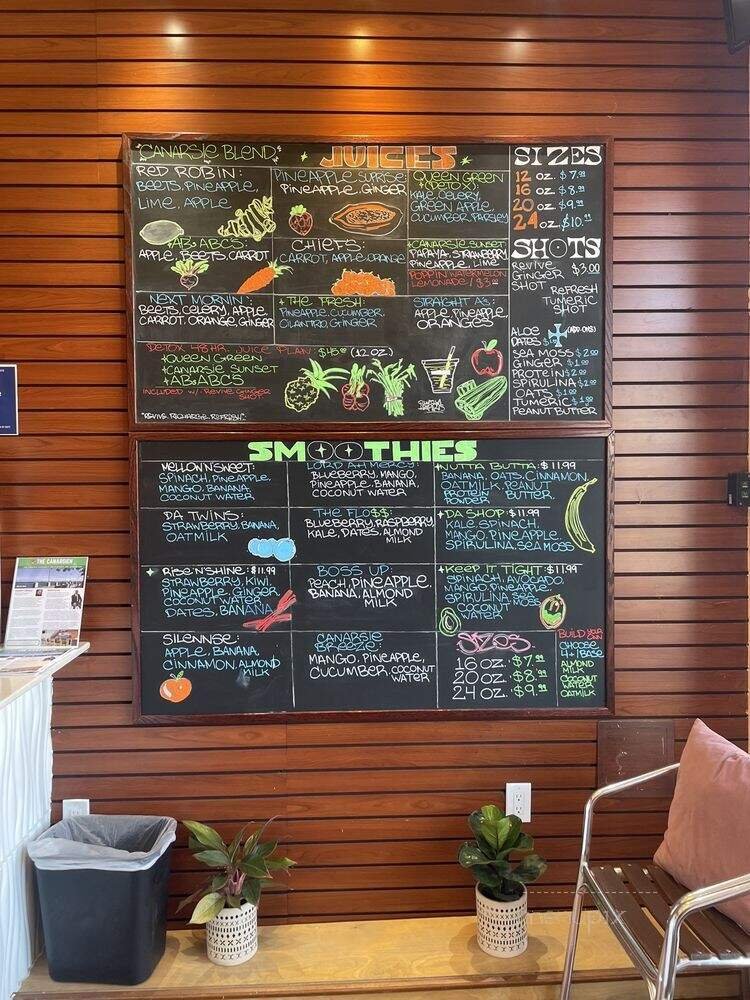 "CANARSIE BLENDS"
JUICES
RED ROBIN:
BEETS, PINEAPPLE,
LIME, APPLE
PINEAPPLE SUPRISE:
PINEAPPLE, GINGER
QUEEN GREEN
(DETOX):
KALE, CELERY,
GREEN APPLE
CUCUMBER, PARSLEY
AB+ ABCS:
APPLE, BEETS, CARROT
CHIEFS:
CARROT, APPLE, ORANGE
CANARSIE SUNSET
PAPAYA, STRAWBERRY
PINEAPPLE, LIME
POPPIN WATERMELON
LEMONADE / $3.00
NEXT MORNIN:
BEETS, CELERY, APPLE
CARROT, ORANGE, GINGER
THE FRESH:
PINEAPPLE, CUCUMBER,
CILANTRO, GINGER
STRAIGHT A's:
APPLE, PINEAPPLE
ORANGES
DETOX 48 HR. JUICE PLAN: (12 OZ.)
QUEEN GREEN
CANARSIE SUNSET
AB+ ABCS
INCLUDED W/- REVIVE GINGER
SHOT
"REVIVE. RECHARGE. REFRESH."
SIZES
12 OZ. $7.99
16 OZ. $8.99
20 OZ. $9.99
24 OZ. $10.99
SHOTS
REVIVE
GINGER $3.00
SHOT
REFRESH
TUMERIC
SHOT
ALOE (ADD-ONS)
DATES
SEA MOSS $2.00
GINGER $1.00
PROTEIN $2.00
SPIRULINA
OATS
TUMERIC
PEANUT BUTTER
SMOOTHIES
MELLOW N SWEET:
SPINACH, PINEAPPLE,
MANGO, BANANA,
COCONUT WATER
LORD A+ MERCY:
BLUEBERRY, MANGO,
PINEAPPLE, BANANA,
COCONUT WATER
NUTTA BUTTA: $11.99
BANANA, OATS, CINNAMON,
OATMILK, PEANUT
PROTEIN BUTTER
POWDER
DA TWINS:
STRAWBERRY, BANANA,
OATMILK
THE FLO$$:
BLUEBERRY, RASPBERRY,
KALE, DATES, ALMOND
MILK
DA SHOP: $11.99
KALE, SPINACH,
MANGO, PINEAPPLE
SPIRULINA, SEAMOSS
RISE 'N' SHINE: $11.99
STRAWBERRY, KIWI,
PINEAPPLE, GINGER,
COCONUT WATER
DATES, BANANA
BOSS UP:
PEACH, PINEAPPLE,
BANANA, ALMOND
MILK
KEEP IT TIGHT: $11.99
SPINACH, AVOCADO
MANGO, PINEAPPLE
SPIRULINA, SEA MOSS
COCONUT
WATER
SILENNSE:
APPLE, BANANA,
CINNAMON, ALMOND
MILK
CANARSIE
BREEZE:
MANGO, PINEAPPLE,
CUCUMBER, COCONUT
WATER
SIZES
16 OZ. $7.99
20 OZ. $8.99
24 OZ. $9.99
BUILD YOUR
OWN
CHOOSE
4 + 1 BASE
ALMOND
MILK
COCONUT
WATER
OATMILK
THE CANARSIEN